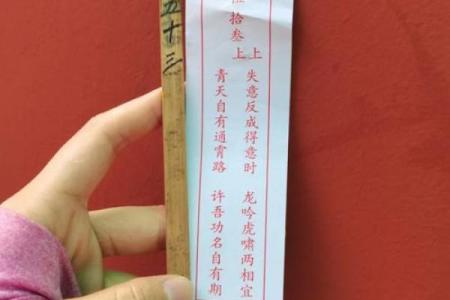 五十三
拾叁
上上
失意反成得意时 龙吟虎啸两相宜
青天自有通霄路 许吾功名自有期